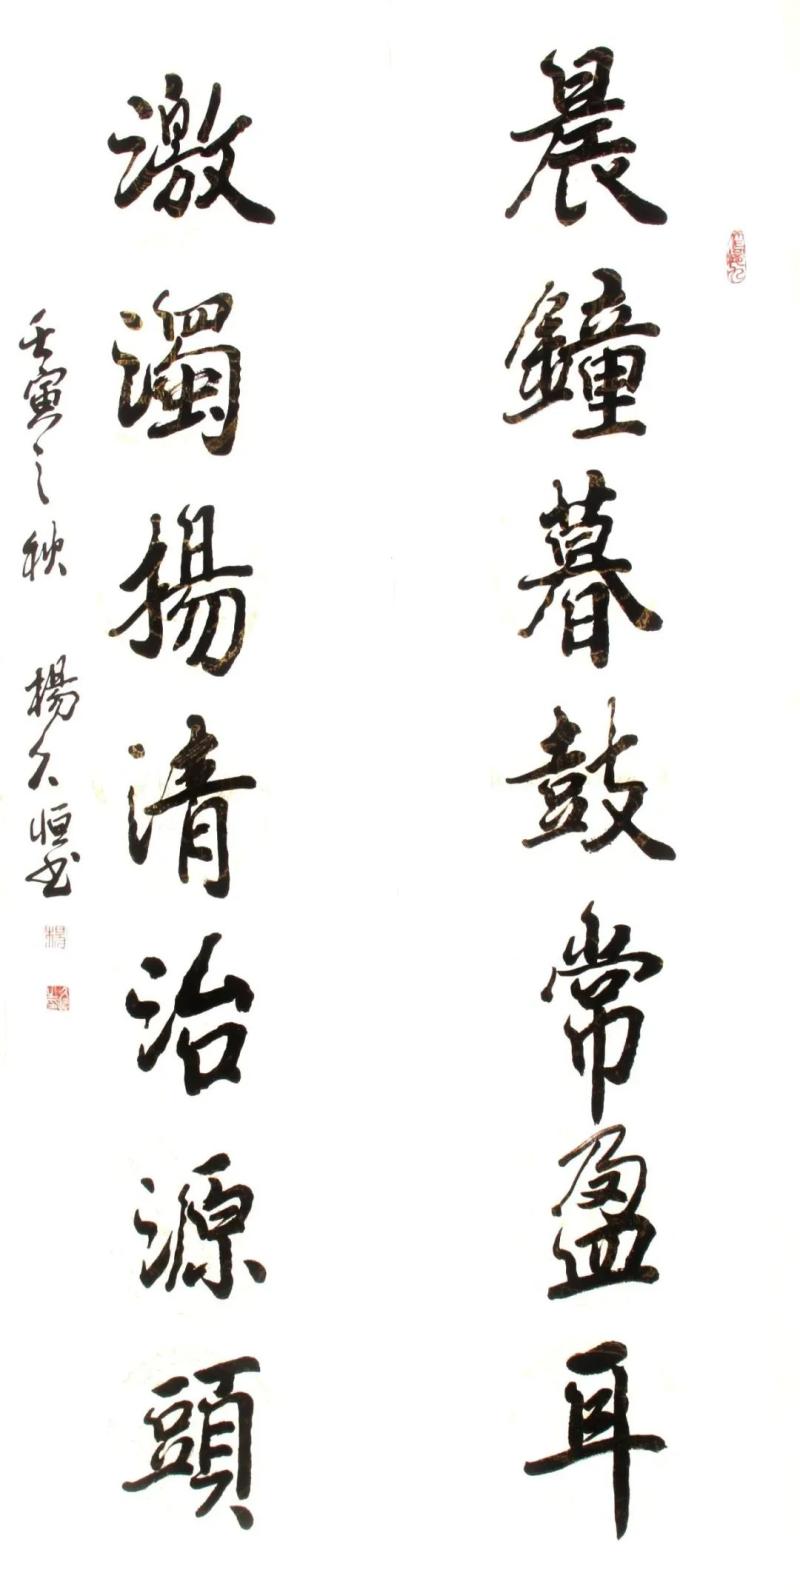 晨鐘暮鼓常盈耳
激濁揚清治源頭
壬寅之秋 楊久恒书
楊